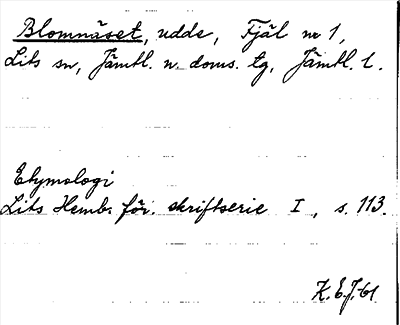 Blomnäset, udde, Fjäl nr 1,
Lits sn, Jämtl. n. doms. tg, Jämtl. l.
Etymologi
Lits Hemb. för. skriftserie I, s. 113.
K.E.J. 61